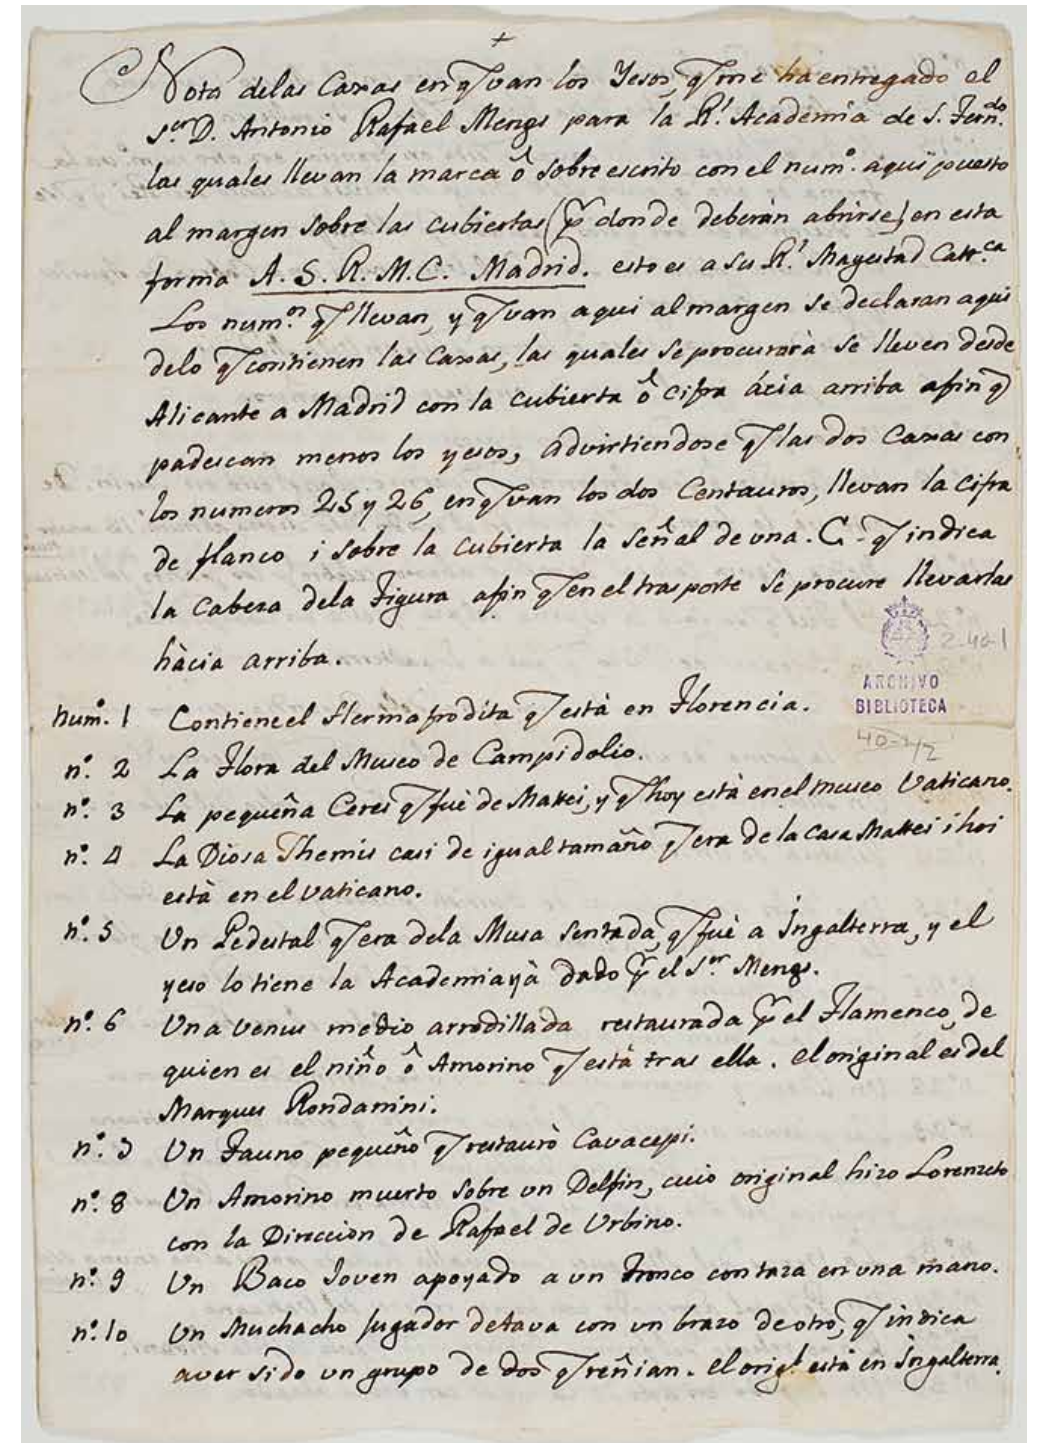 +
Nota de las Caxas en q̃ van los Yesos, q̃ me ha entregado el
S.or D. Antonio Rafael Mengs para la R.l Academia de S. Fern.do
las quales llevan la marca ô sobre escrito con el num.o aqui puesto
al margen sobre las cubiertas (pr donde deberàn abrirse) en esta
forma A. S. R. M. C. Madrid. esto es a su R.l Magestad Catt.ca
Los num.os q̃ llevan, y q̃ van aqui al margen se declaran aqui
delo q̃ contienen las Caxas, las quales se procurarà se lleven desde
Alicante a Madrid con la cubierta ô cifra ácia arriba afin q̃
padescan menos los yesos, advirtiendose q̃ las dos Caxas con
los numeros 25 y 26, en q̃ van los dos Centauros, llevan la cifra
de flanco i sobre la cubierta la señal de una . C - q̃ indica
la Cabeza dela Figura afin q̃ en el trasporte se procure llevarlas
hàcia arriba.
2-40-1
ARCHIVO
BIBLIOTECA
40-2/2
num.o 1 Contiene el Hermafrodita q̃ està en Florencia.
n.o 2 La Flora del Museo de Campidolio.
n.o 3 La pequeña Ceres q̃ fuè de Mattei, y q̃ hoy està en el museo Vaticano.
n.o 4 La Diosa Themis casi de igual tamaño q̃ era de la Casa Mattei i hoi
està en el Vaticano.
n.o 5 Un Pedestal q̃ era dela Musa Sentada, q̃ fuè a Ingalterra, y el
yeso lo tiene la Academia yà dado pr el S.or Mengs.
n.o 6 Una Venus medio arrodillada restaurada pr el Flamenco, de
quien es el niño ô Amorino q̃ està tras ella. el original es del
Marques Rondanini.
n.o 7 Un Fauno pequeño q̃ restaurò Cavacepi.
n.o 8 Un Amorino muerto sobre un Delfin, cuio original hizo Lorenzeto
con la Direccion de Rafael de Urbino.
n.o 9 Un Baco Joven apoyado a un tronco con taza en una mano.
n.o 10 Un Muchacho Jugador de tava con un brazo de otro, q̃ indica
aver sido un grupo de dos q̃ reñian. el orig.l està en Ingalterra.